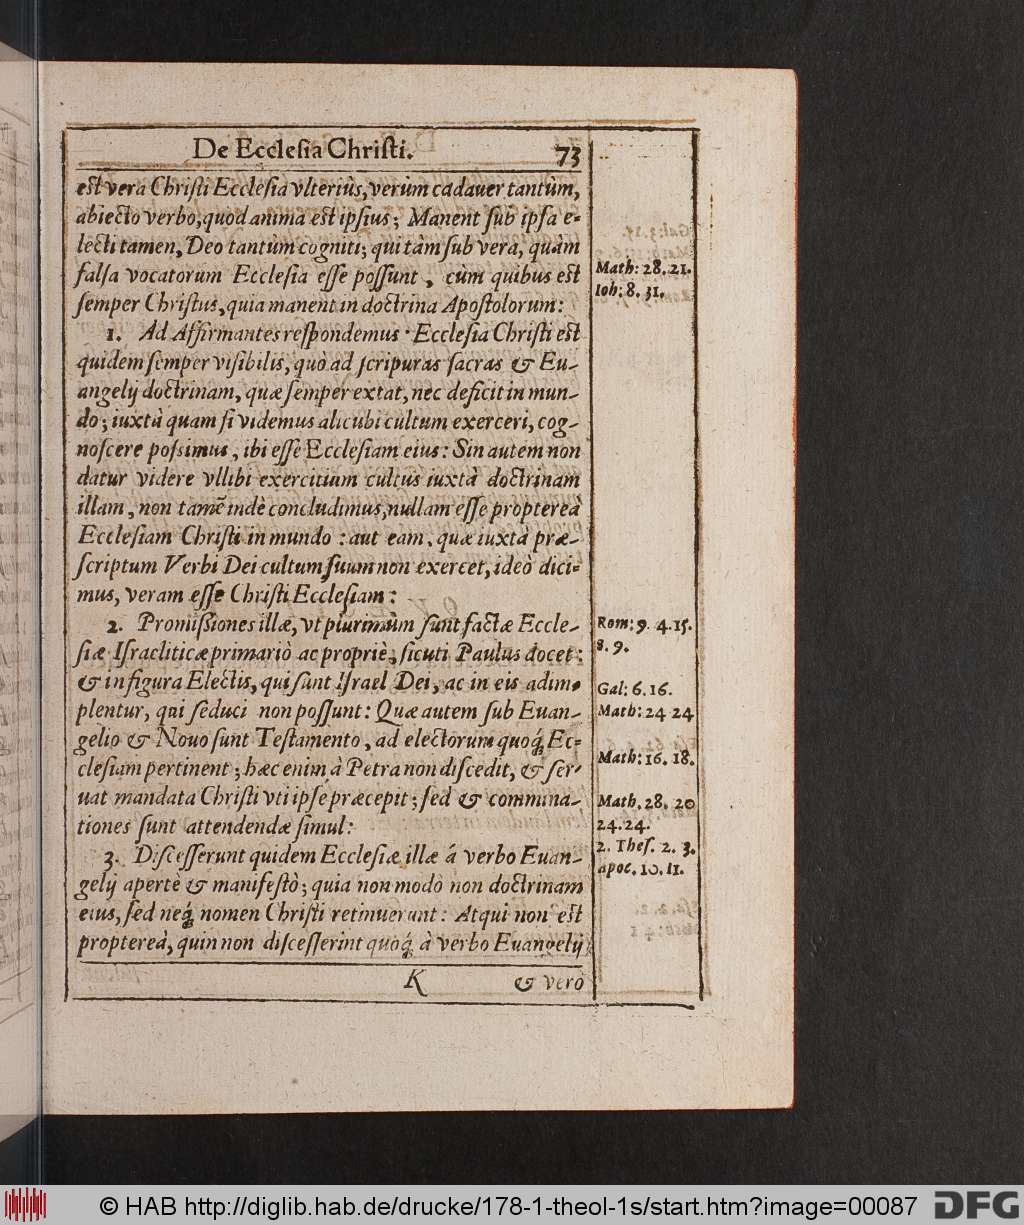 De Ecclesia Christi. 73
est vera Christi Ecclesia vlteriùs, verùm cadauer tantùm,
abiecto verbo, quod anima est ipsius; Manent sub ipsa e-
lecti tamen, Deo tantùm cogniti; qui tàm sub vera, quàm
falsa vocatorum Ecclesia esse possunt, cùm quibus est
Math: 28. 21.
semper Christus, quia manent in doctrina Apostolorum:
Ioh: 8. 31.
1. Ad Affirmantes respondemus · Ecclesia Christi est
quidem semper visibilis, quò ad scripuras sacras & Eu-
angelij doctrinam, quæ semper extat, nec deficit in mun-
do; iuxtà quam si videmus alicubi cultum exerceri, cog-
noscere possimus, ibi esse Ecclesiam eius: Sin autem non
datur videre vllibi exercitium cultus iuxtà doctrinam
illam, non tamẽ indè concludimus, nullam esse proptereà
Ecclesiam Christi in mundo: aut eam, quæ iuxtà præ-
scriptum Verbi Dei cultum suum non exercet, ideò dici-
mus, veram esse Christi Ecclesiam:
2. Promissiones illæ, vt plurimùm sunt factæ Eccle-
Rom: 9. 4. 15.
siæ Israeliticæ primariò ac propriè, sicuti Paulus docet:
8. 9.
& in figura Electis, qui sunt Israel Dei, ac in eis adim-
Gal: 6. 16.
plentur, qui seduci non possunt: Quæ autem sub Euan-
Math: 24 24
gelio & Nouo sunt Testamento, ad electorum quoq́; Ec-
clesiam pertinent; hæc enim à Petra non discedit, & ser-
Math: 16. 18.
uat mandata Christi vti ipse præcepit; sed & commina-
Math. 28. 20
tiones sunt attendendæ simul:
24. 24.
3. Discesserunt quidem Ecclesiæ illæ á verbo Euan-
2. Thes. 2. 3.
gelij apertè & manifestò; quia non modò non doctrinam
apoc. 10. 11.
eius, sed neq́; nomen Christi retinuerunt: Atqui non est
proptereà, quin non discesserint quoq́; à verbo Euangelij
K & verò
© HAB http://diglib.hab.de/drucke/178-1-theol-1s/start.htm?image=00087 DFG